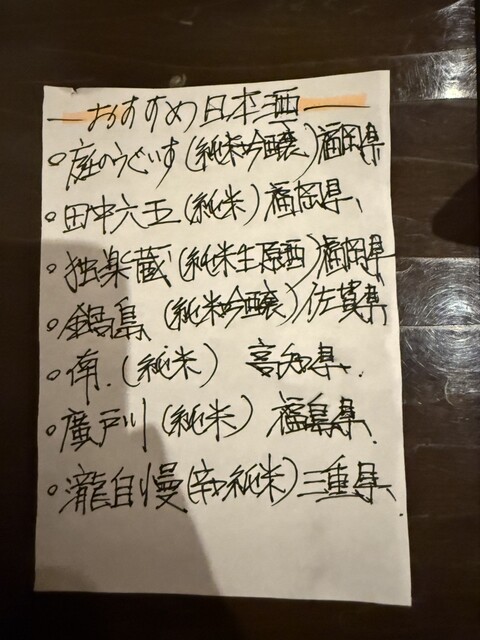 おすすめ日本酒
○庭のうぐいす(純米吟醸)福岡県
○田中六五(純米)福岡県、
○独楽蔵(純米生原酒)福岡県
○鍋島(純米吟醸)佐賀県
○南.(純米)高知県.
○廣戸川(純米)福島県.
○瀧自慢(辛口純米)三重県、